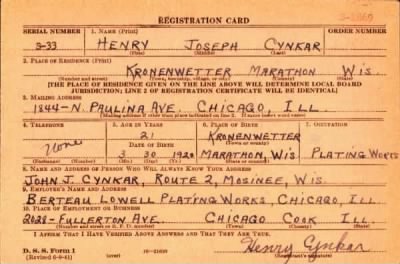 REGISTRATION CARD
SERIAL NUMBER 1. Name (Print) ORDER NUMBER
S-33 HENRY JOSEPH CYNKAR
(First) (Middle) (Last)
2. Place of Residence (Print)
KRONENWETTER MARATHON WIS.
(Number and street) (Town, township, village, or city) (County) (State)
[THE PLACE OF RESIDENCE GIVEN ON THE LINE ABOVE WILL DETERMINE LOCAL BOARD
JURISDICTION; LINE 2 OF REGISTRATION CERTIFICATE WILL BE IDENTICAL]
3. Mailing Address
1844-N. PAULINA AVE. CHICAGO, ILL.
[Mailing address if other than place indicated on line 2. If same insert word same]
4. Telephone 5. Age in Years 6. Place of Birth 7. Occupation
21 KRONENWETTER
None Date of Birth (Town or county)
3 30 1920 MARATHON, WIS. PLATING WORKS
(Exchange) (Number) (Mo.) (Day) (Yr.) (State or country)
8. Name and Address of Person Who Will Always Know Your Address
JOHN J. CYNKAR, ROUTE 2, MOSINEE, WIS.
9. Employer's Name and Address
BERTEAU LOWELL PLATING WORKS, CHICAGO, ILL.
10. Place of Employment or Business
2028-FULLERTON AVE. CHICAGO COOK ILL.
(Number and street or R. F. D. number) (Town) (County) (State)
I Affirm That I Have Verified Above Answers and That They Are True.
D. S. S. Form 1
(Revised 6-9-41) (over) Henry Cynkar